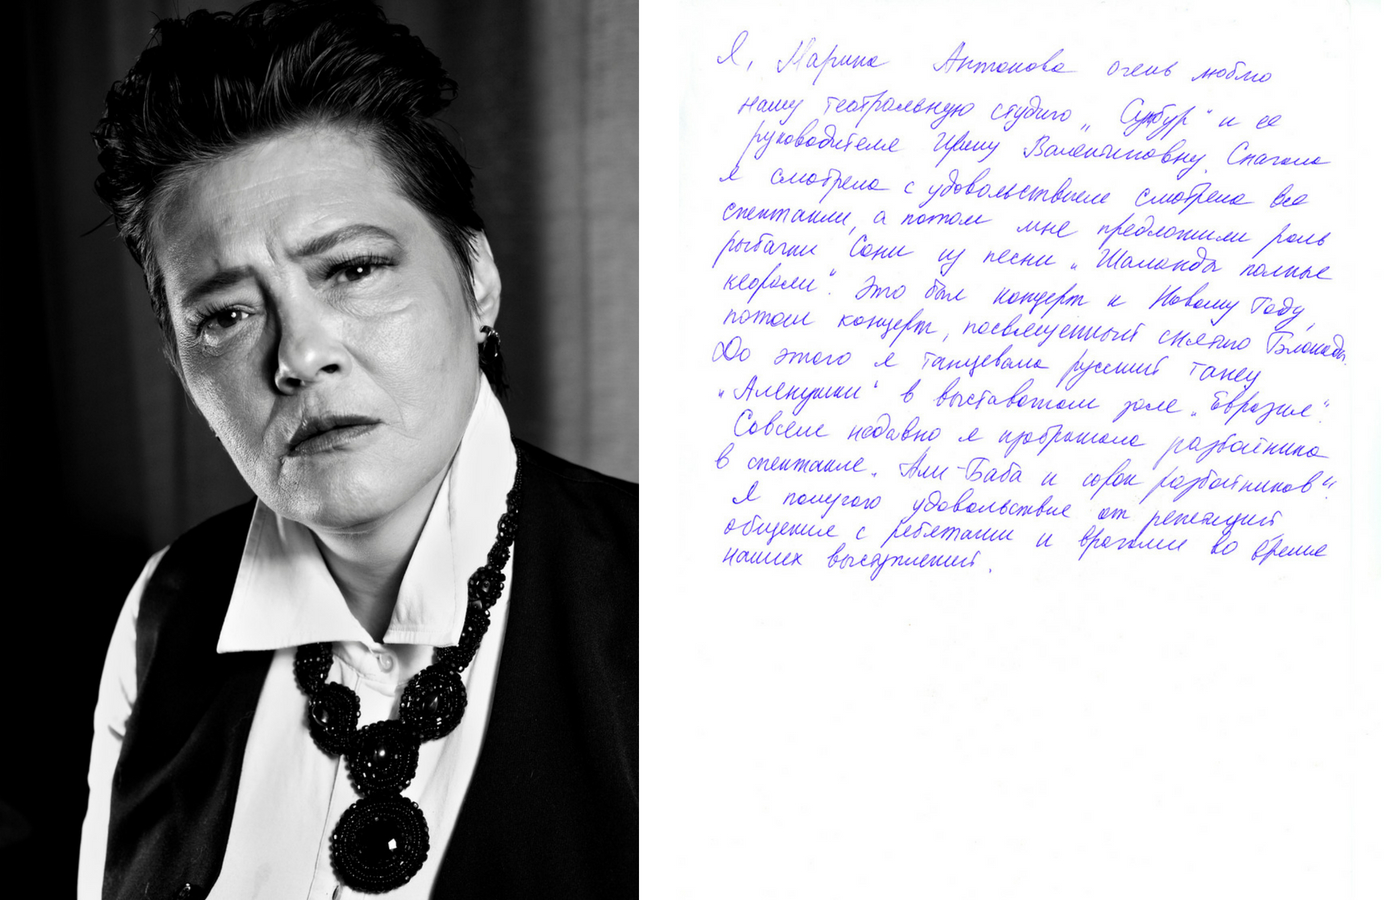 Я, Марина Антонова очень люблю
нашу театральную студию „Сумбур“ и ее
руководителя Ирину Валентиновну. Сначала
я смотрела с удовольствием смотрела все
спектакли, а потом мне предложили роль
рыбачки Сони из песни „Шаланды полные
кефали“. Это был концерт к Новому Году,
потом концерт, посвященный снятию Блокады.
До этого я танцевала русский танец
„Аленушки“ в выставочном зале „Евразия“.
Совсем недавно я изображала разбойника
в спектакле „Али-Баба и сорок разбойников“.
Я получаю удовольствие от репетиций,
общения с ребятами и врачами во время
наших выступлений.